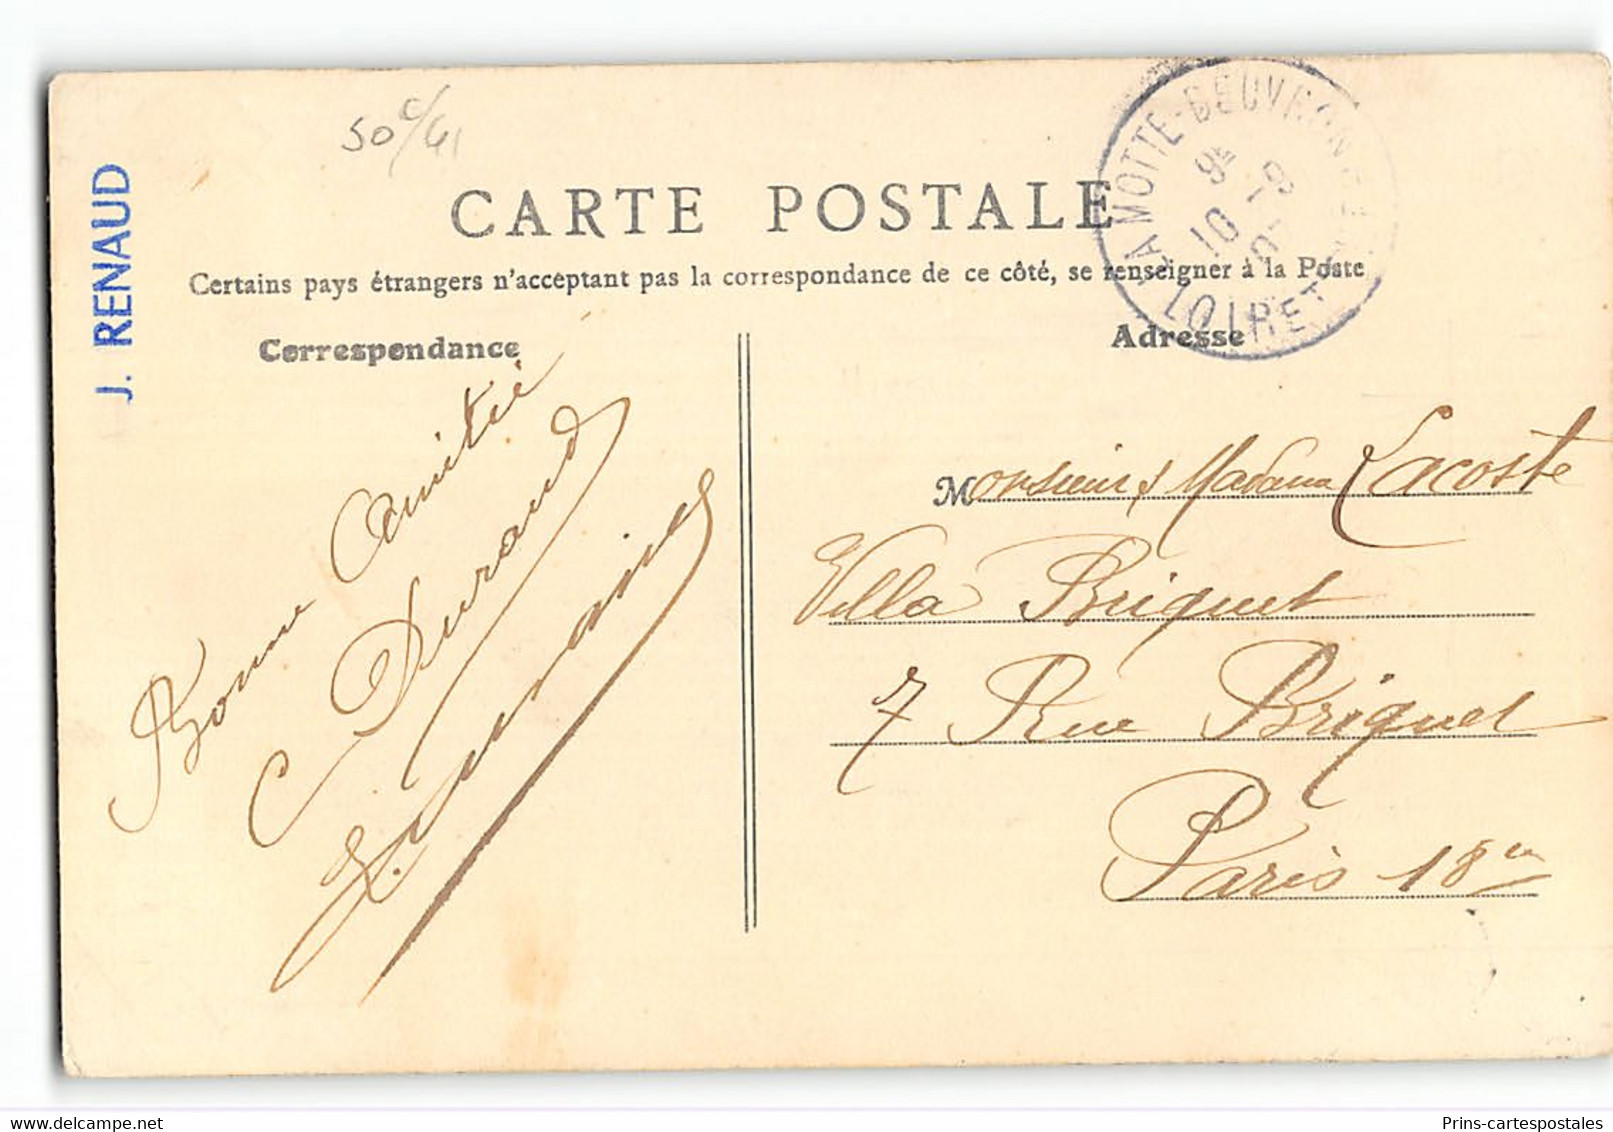 50c/41
J. RENAUD
CARTE POSTALE
LAMOTTE-BEUVRON
LOIRET
Certains pays étrangers n'acceptant pas la correspondance de ce côté, se renseigner à la Poste
Correspondance
Adresse
Bonne Amitié
Durand
Monsieur & Madame Lacoste
Villa Briquet
7 Rue Briquet
Paris 18e
Prins-cartespostales
www.delcampe.net